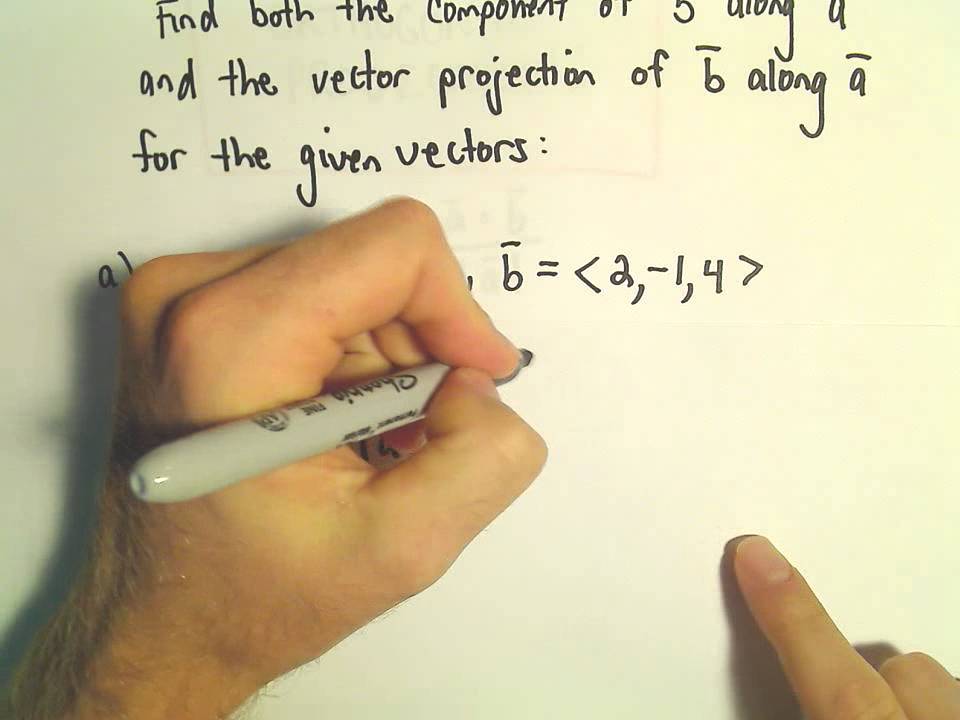 Find both the component of b̄ along ā
and the vector projection of b̄ along ā
for the given vectors:
a) , b̄ = <2,-1,4>
Sharpie